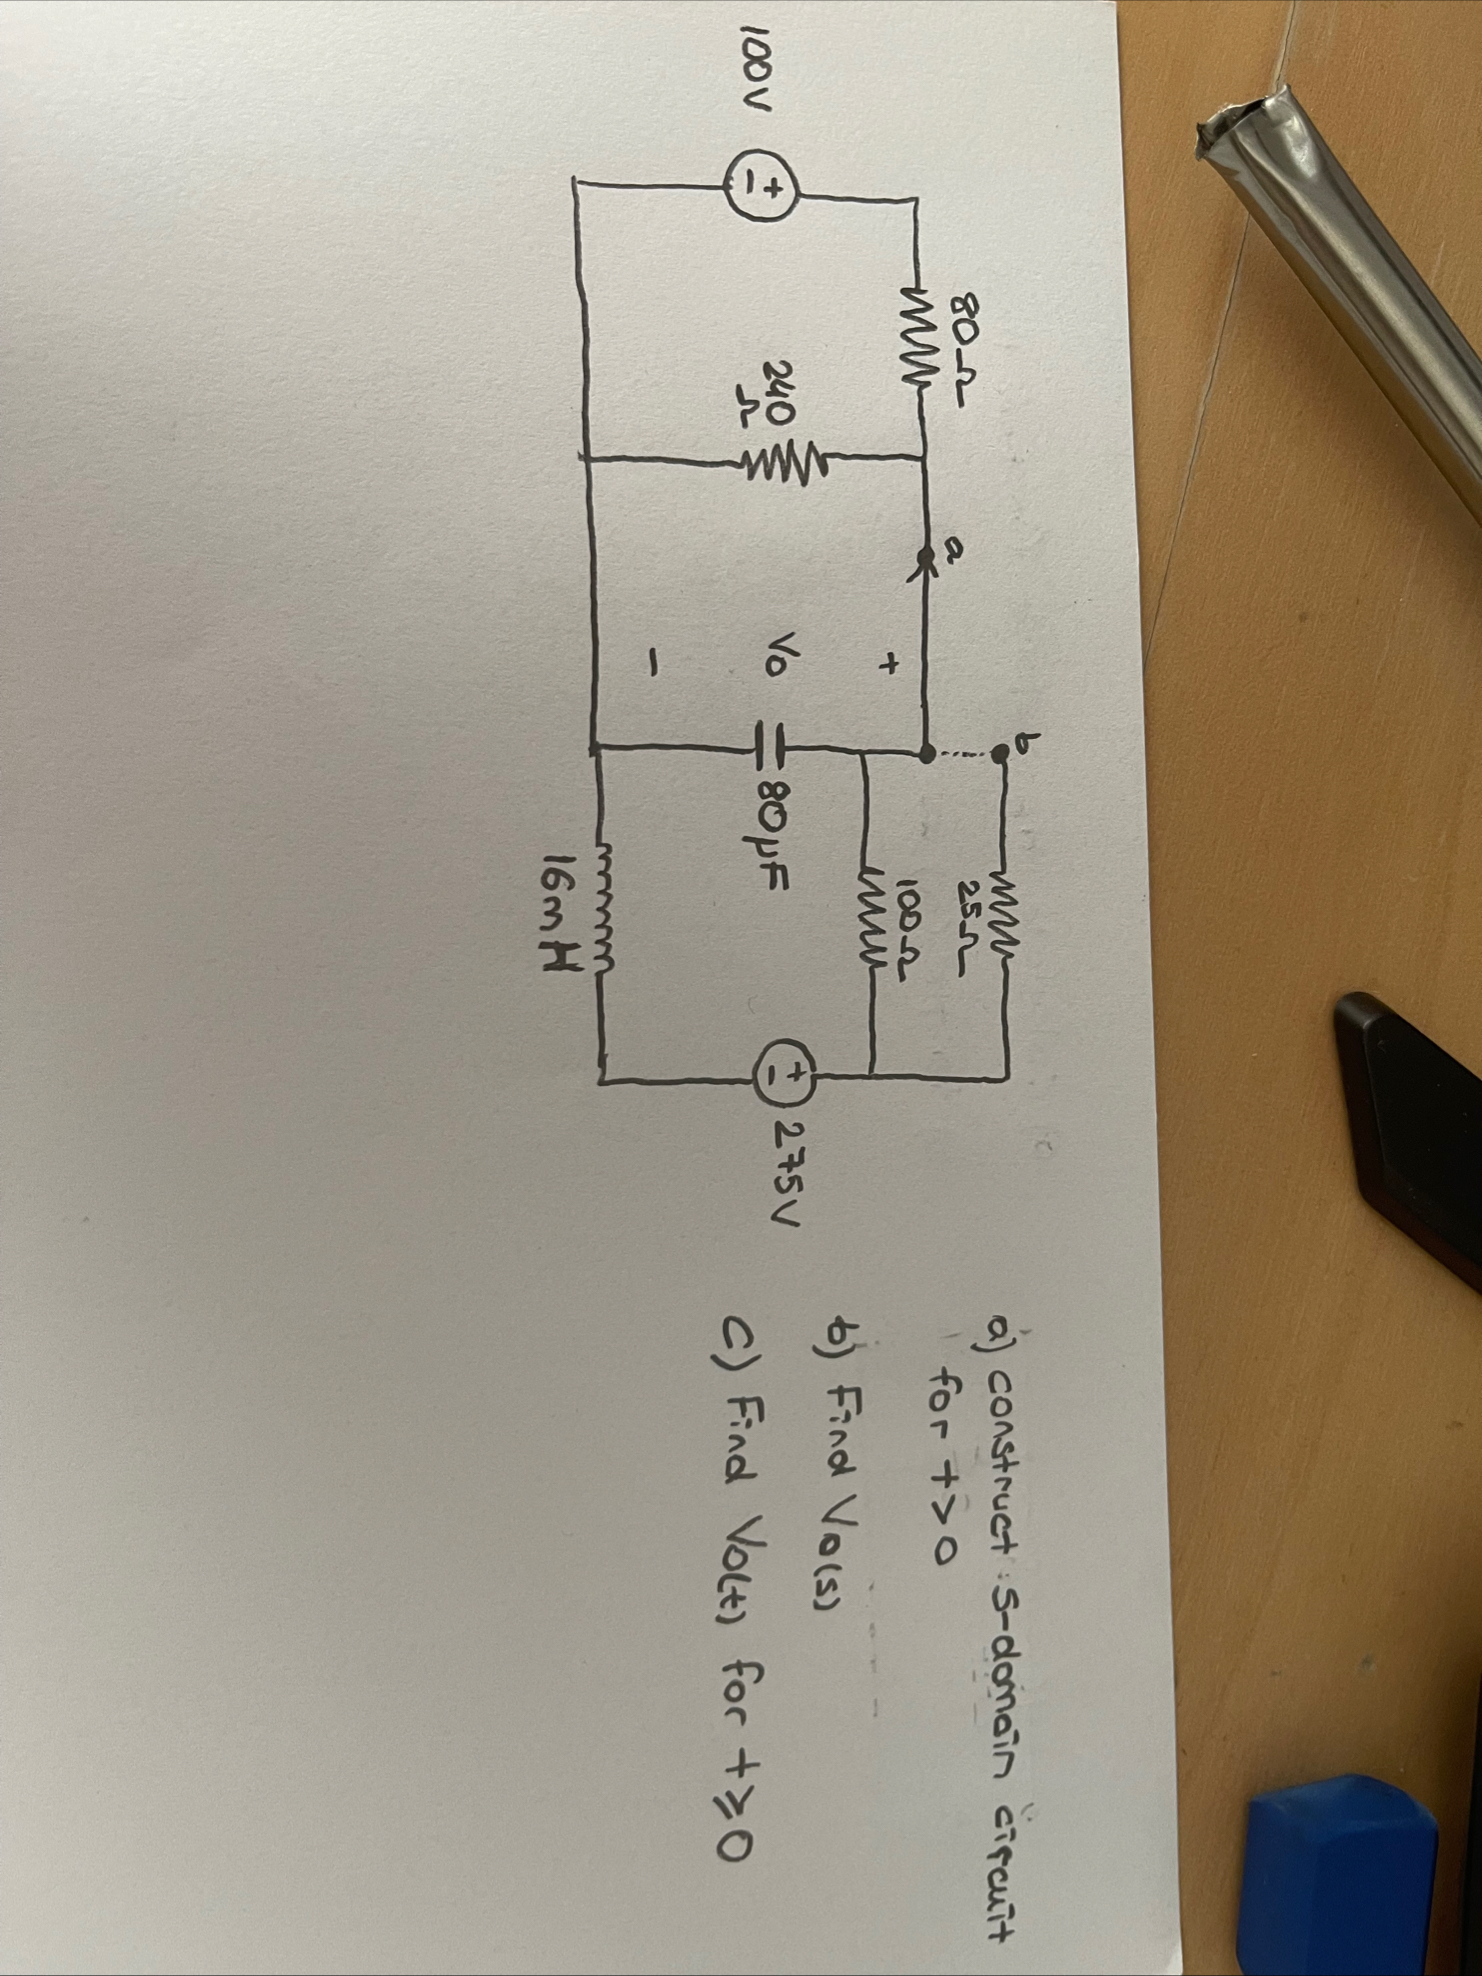 b
80Ω
a
25Ω
100Ω
+
100V
+
-
240
Ω
Vo
80μF
+
-
275V
-
16mH
a) construct s-domain circuit
for t>0
b) Find Vo(s)
c) Find Vo(t) for t≥0